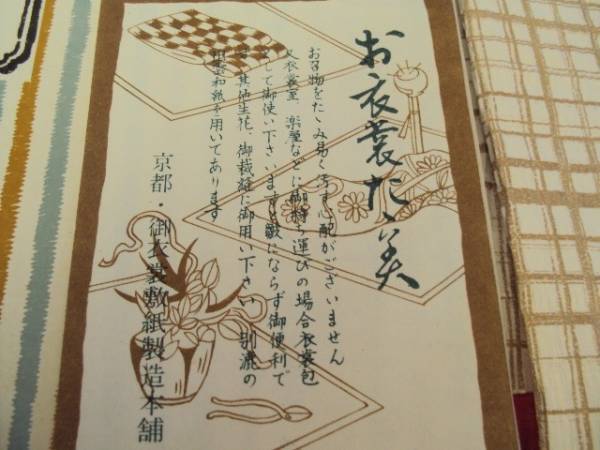 お衣裳たゝ美
お召物をたゝみ易く汚す心配がございません
又衣裳室、楽屋などに御持ち運びの場合衣裳包
として御使い下さいますと皺にならず御便利で
其他生花、御裁縫に御用い下さい 別漉の
和紙を用いてあります
京都・御衣裳敷紙製造本舗